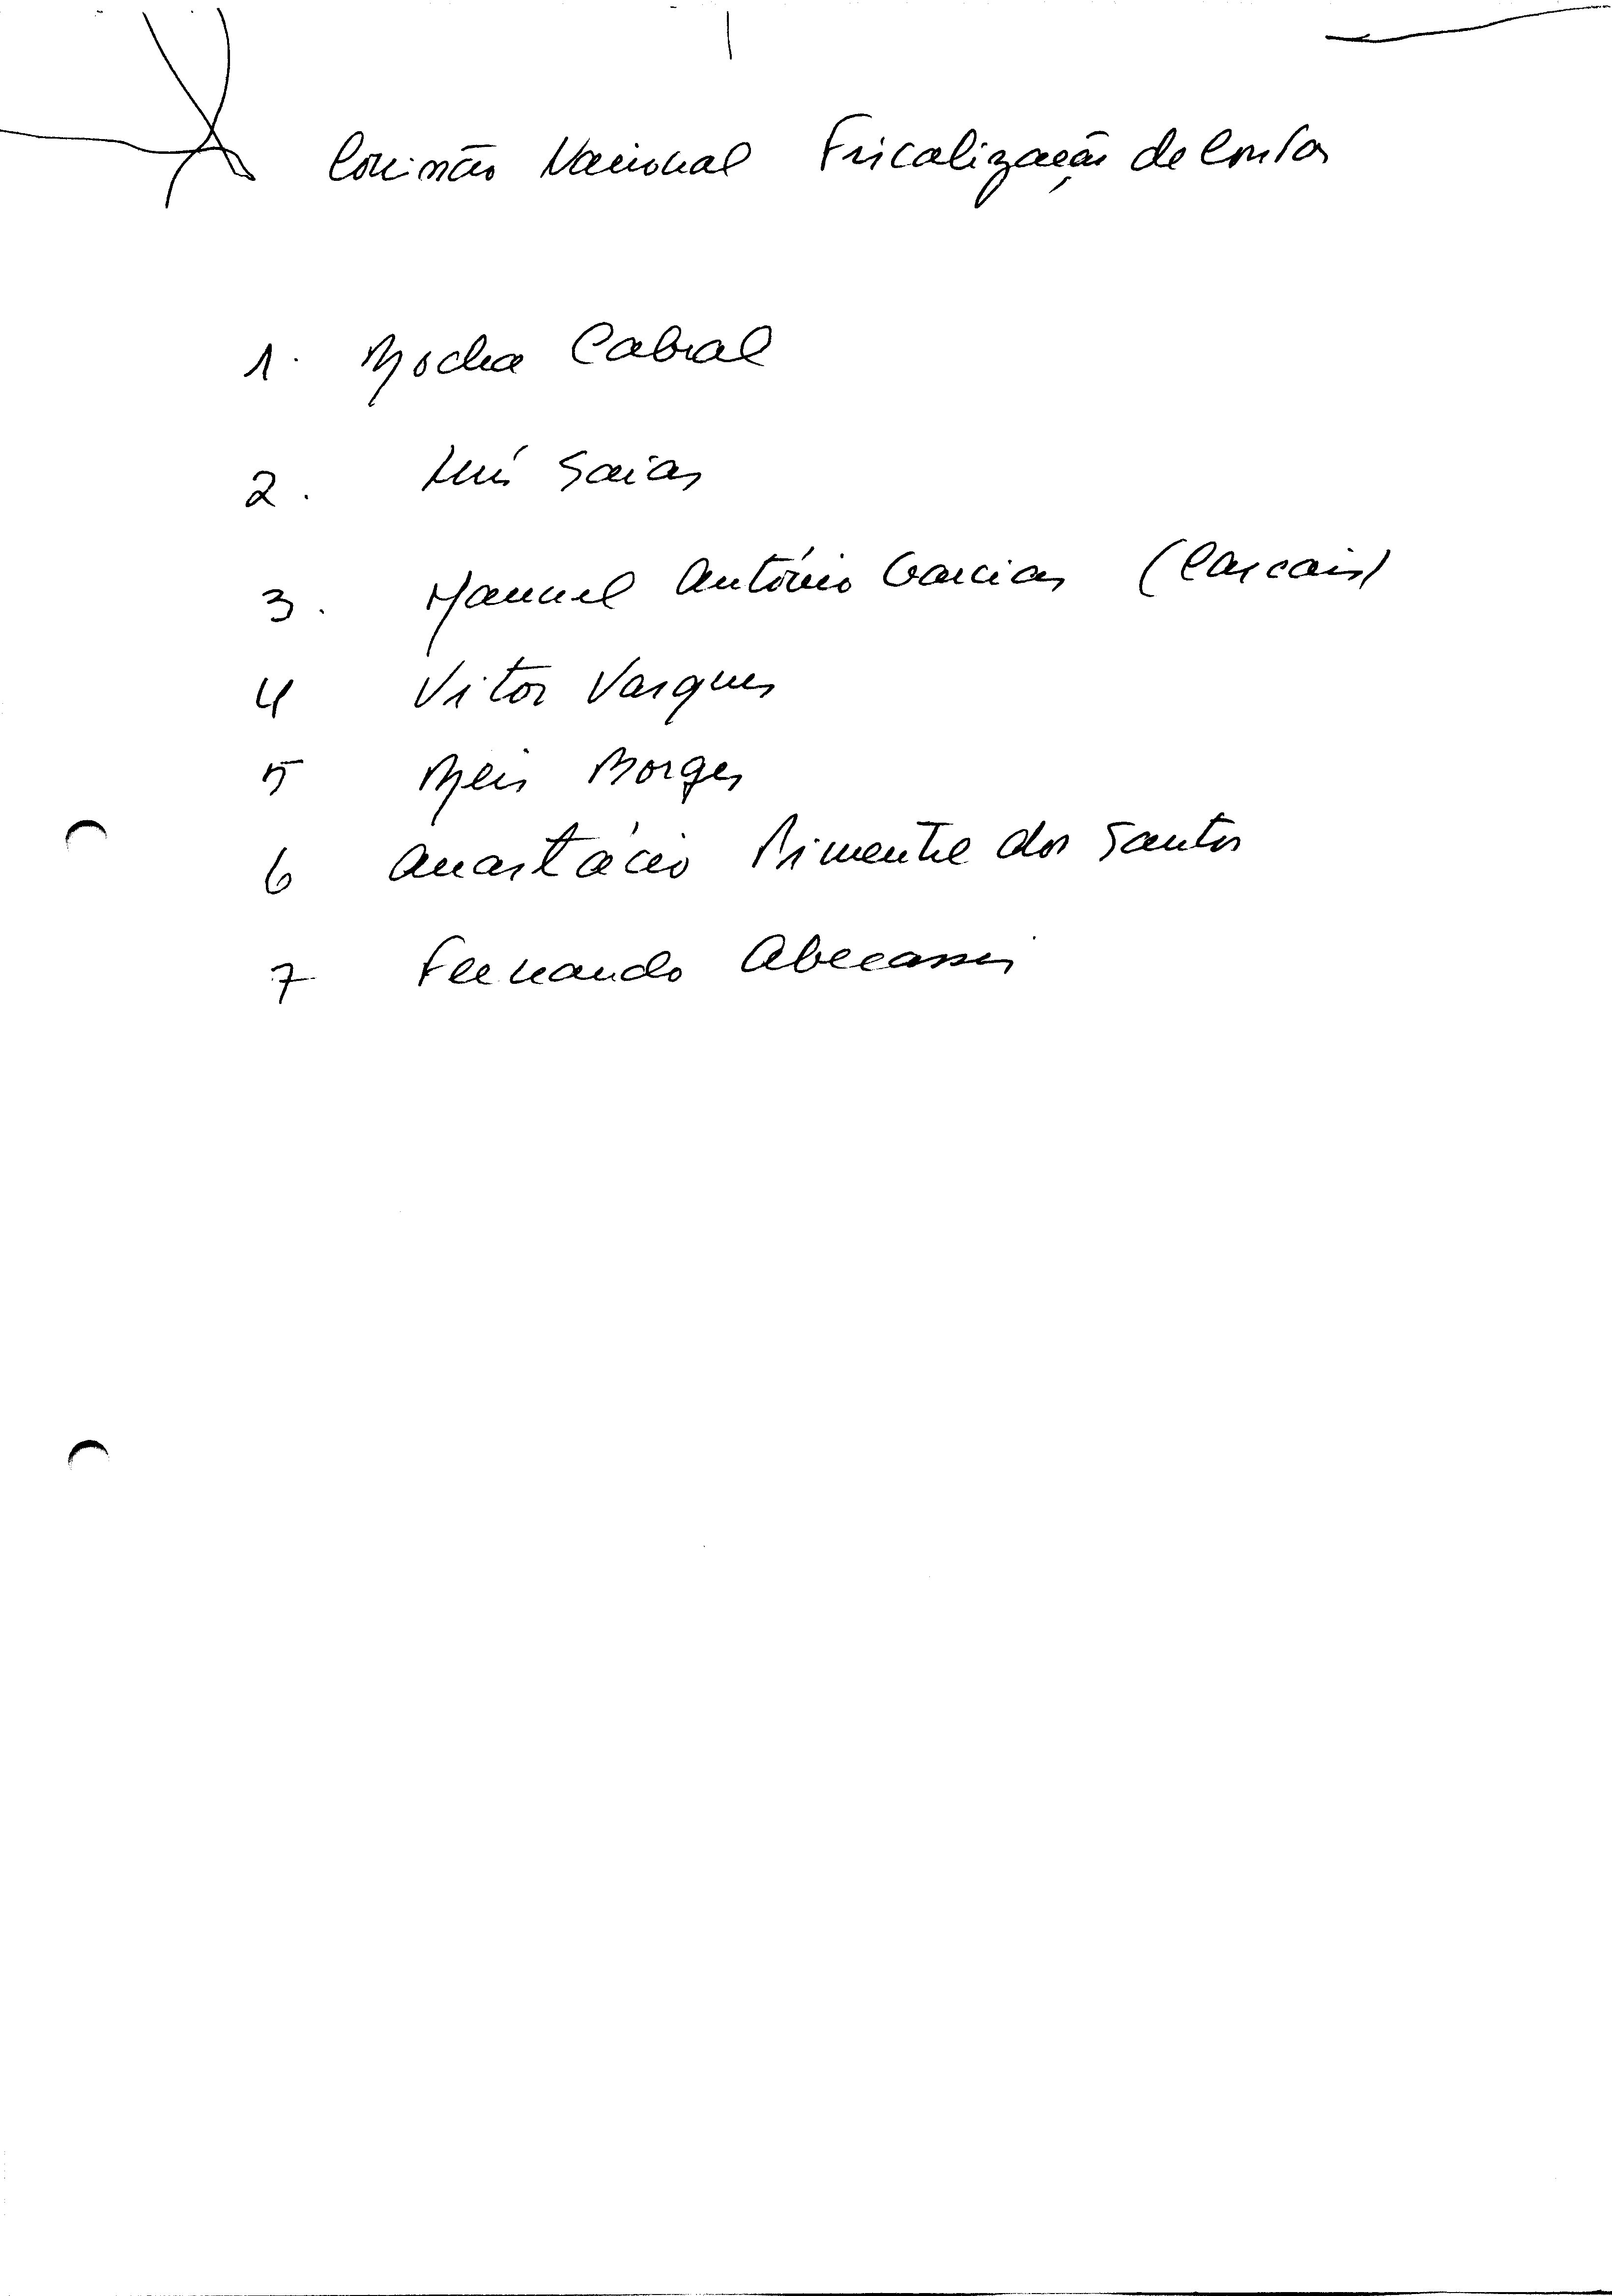 Comissão Nacional Fiscalização de Contas
1. Rocha Cabral
2. Luís Saias
3. Manuel António Garcias (Cascais)
4 Vitor Vasques
5 Reis Borges
6 Anastácio Pimentel dos Santos
7 Fernando Abecassis